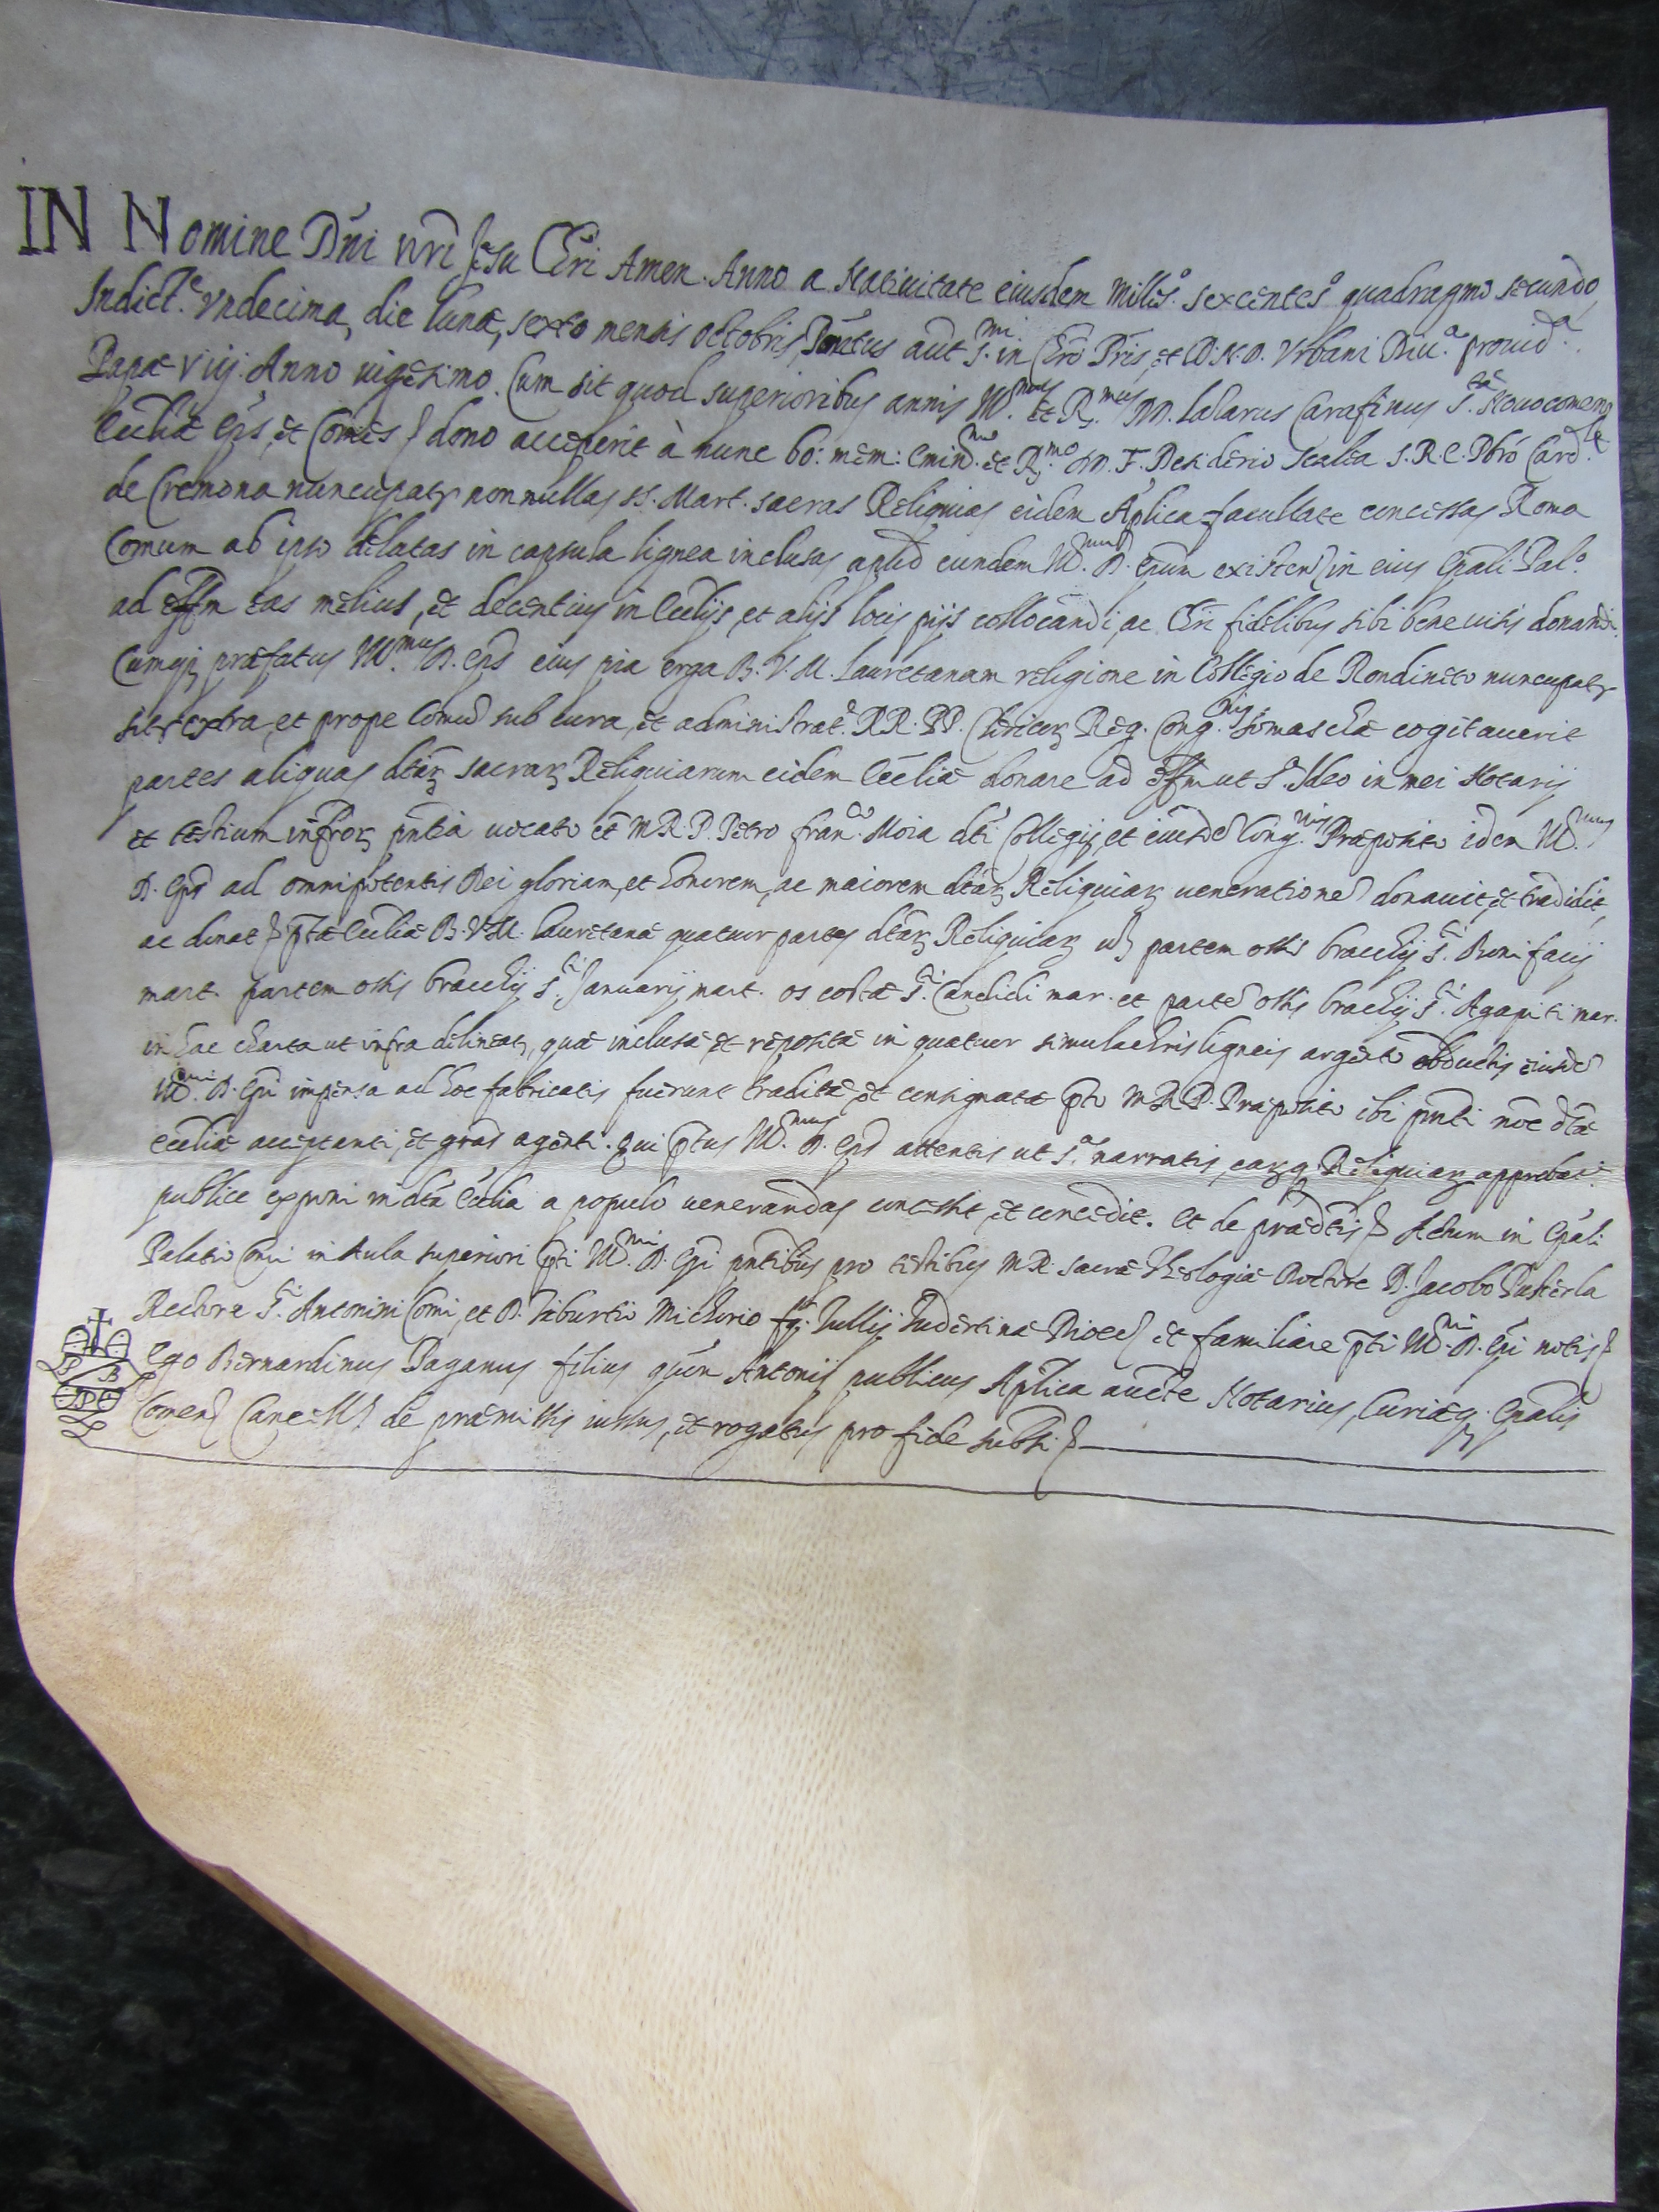 IN Nomine Dñi nri Jesu Chri Amen. Anno a Natiuitate eiusdem Milles.º sexcentes.º quadragmo secundo,
Indict.e Vndecima, die Lunæ, sexto mensis Octobris, Pontus aut S.mi in Chro Pris, et D. N. D. Vrbani Diu.a prouid.a
Papæ Viij. Anno uigesimo. Cum sit quod superioribus annis Ill.mus et R.mus DD. Lazarus Carafinus S.tæ Nouocomen
Ecclíæ Eps, et Comes dono acceperit à nunc bo: mem: Emin.mo et R.mo DD. F. Desiderio Scalia S. R. E. Pbró Card.le
de Cremona nuncupatr nonnullas SS. Mart. sacras Reliquias eidem Aplica facultate concessas Roma
Comum ab ipso delatas in capsula lignea inclusas apud eundem Ill.mum D. Epum existen in eius Epali Pal.º
ad effm eas melius, et decentius in Ecclijs, et alijs locis pijs collocandi, ac Chri fidelibus sibi bene uisis donandi.
Cumq; præfatus Ill.mus D. Eps eius pia erga B. V. M. Lauretanam religione in Collegio de Rondineto nuncupatr
sitr extra, et prope Comu sub cura, et administrat.e RR. PP. Clericor Reg. Cong.nis Somaschæ cogitauerit
partes aliquas dtár sacrar Reliquiarum eidem Ecclíæ donare ad effm ut s.a Ideo in mei Notarij
et testium infror pntia uocato et M. R. P. Petro Fran.co Moia dti Collegij, et eiusd Cong.nis Præposito idem Ill.mus
D. Eps ad omnipotentis Dei gloriam, et honorem, ac maiorem dtár Reliquiar ueneratione donauit, et tradidit,
ac donat ptæ Ecclíæ B. V. M. Lauretanæ quatuor partes dtár Reliquiar uz partem ossis bracchij S.ti Bonifacij
mart. partem ossis bracchij S.ti Januarij mart. os costæ S.ti Candidi mar. et parte ossis brachij S.ti Agapiti mar.
in hac charta ut infra delineat, quæ inclusæ et repositæ in quatuor simulachris ligneis argento obductis eiusd
Ill.mi D. Epi impensa ad hoc fabricatis fuerunt traditæ et consignatæ pto M. R. P. Præposito ibi pnti noe dtæ
Ecclíæ acceptanti, et gras agenti. Qui ptus Ill.mus D. Eps attentis ut s.a narratis, earq Reliquiar approbat.e
publice exponi in dta Ecclía a populo uenerandas concessit, et concedit. Et de prædtis Actum in Epali
Palatio Comi in Aula superiori pti Ill.mi D. Epi pntibus pro testibus M. R. sacræ Theologiæ Doctore D. Jacobo Pusterla
Rectore S.ti Antonini Comi, et D. Tiburtio Michorio Tudertinæ Dioec et familiare pti Ill.mi D. Epi notis
Ego Bernardinus Paganus filius quon Antonij publicus Aplica aucte Notarius, Curiæq. Epalis
Comen Cancell.s de præmissis iussus, et rogatus pro fide subscri